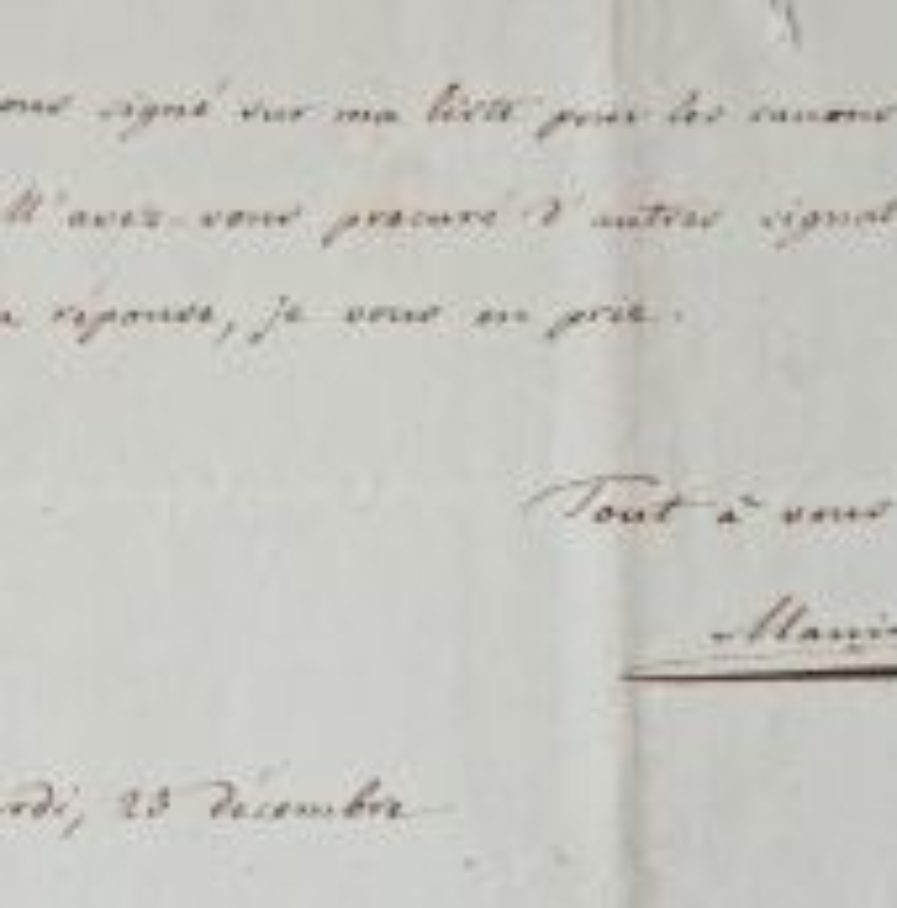 ous signé sur ma liste pour les canons
M'avez-vous procuré d'autres signat
a réponse, je vous en prie.
Tout à vous
Manin
rdi, 23 décembre